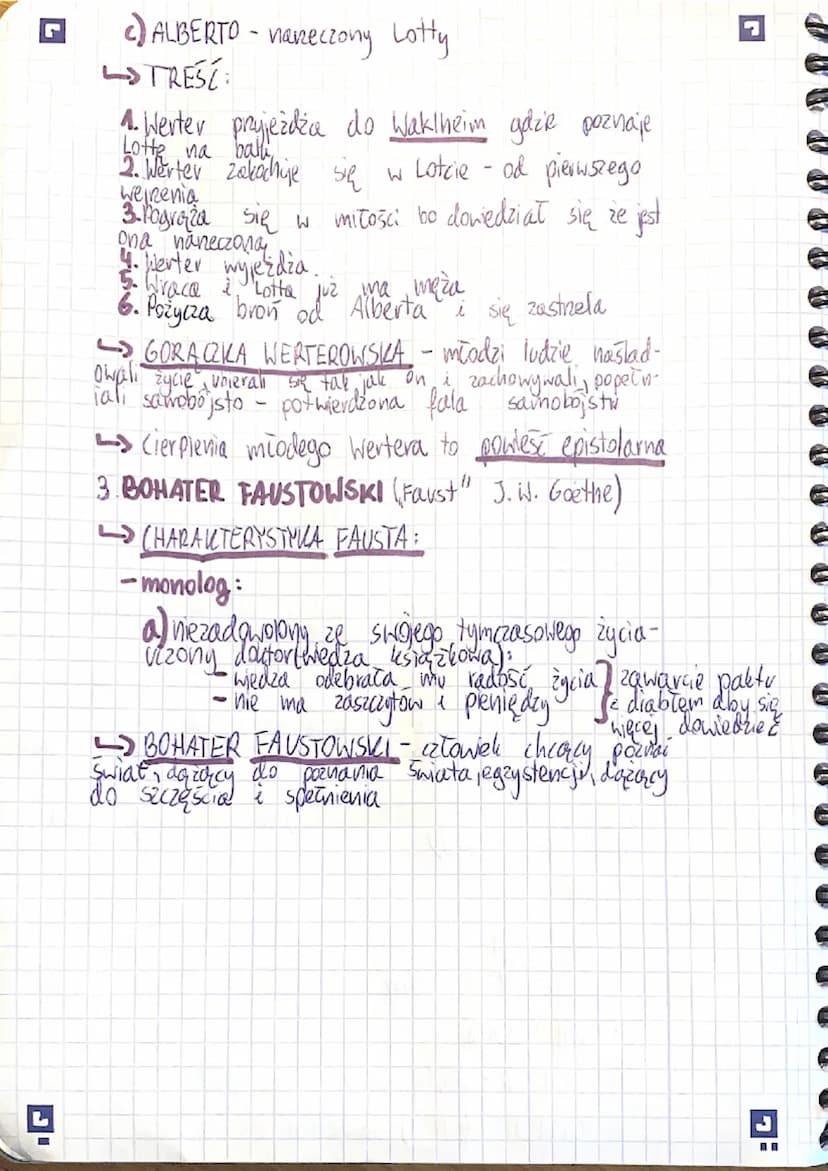 c) ALBERTO - narzeczony Lotty
↳ TREŚĆ:
1. Werter przyjeżdża do Waklheim gdzie poznaje
Lottę na balu
2. Werter zakochuje się w Lotcie - od pierwszego
wejrzenia
3. Pogrąża się w miłości bo dowiedział się że jest
ona narzeczoną
4. Werter wyjeżdża.
5. Wraca i Lotta już ma męża
6. Pożycza broń od Alberta i się zastrzela
↳ GORĄCZKA WERTEROWSKA - młodzi ludzie naślad-
owali życie, ubierali się tak jak on i zachowywali, popełn-
iali samobójsto - potwierdzona fala samobójstw
↳ Cierpienia młodego Wertera to powieść epistolarna
3. BOHATER FAUSTOWSKI („Faust" J. W. Goethe)
↳ CHARAKTERYSTYKA FAUSTA:
- monolog:
a) niezadowolony ze swojego tymczasowego życia -
uczony doktor (wiedza książkowa):
- wiedza odebrała mu radość życia } zawarcie paktu
- nie ma zaszczytów i pieniędzy } z diabłem aby się
więcej dowiedzieć
↳ BOHATER FAUSTOWSKI - człowiek chcący poznać
świat, dążący do poznania świata, egzystencji, dążący
do szczęścia i spełnienia